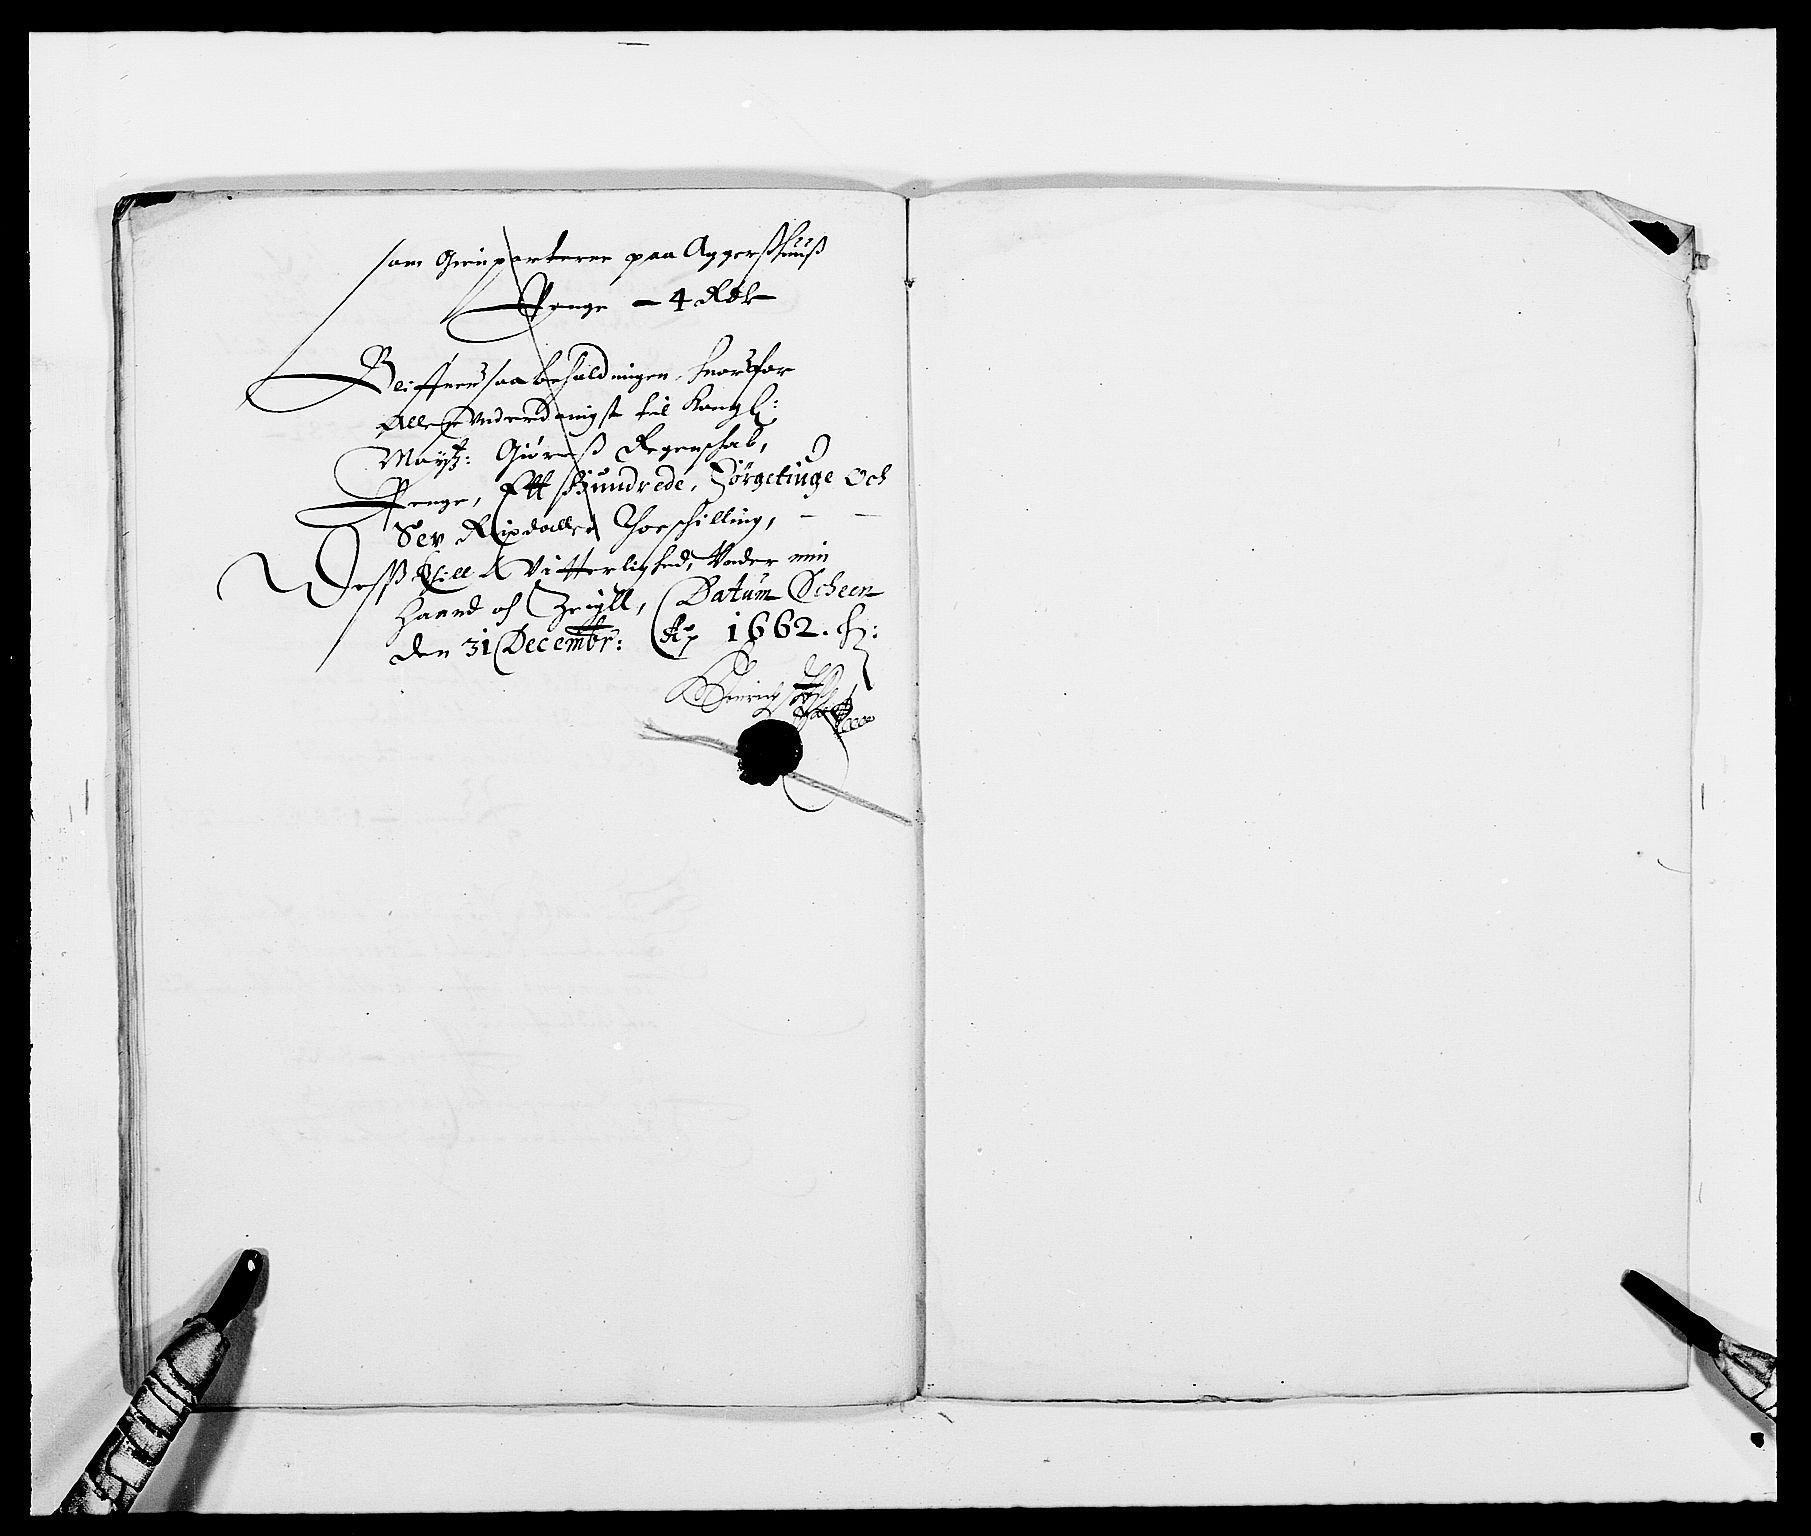 som Gienparterne paa Aggershuuß
Penge — 4 Rdr
Bliffuer saa beholdningen, huorfor
Aller Underdanigst til Kongl:
Mayst: Giøris Regenschab,
Penge, Ett Hundrede, Sørgetiuge Och
Sex Rixdaller Thoeschilling, — —
Dess till Vitterlighed, Under min
Haand och Zeigll, Datum Scheen
den 31 Decembr: Ao 1662.